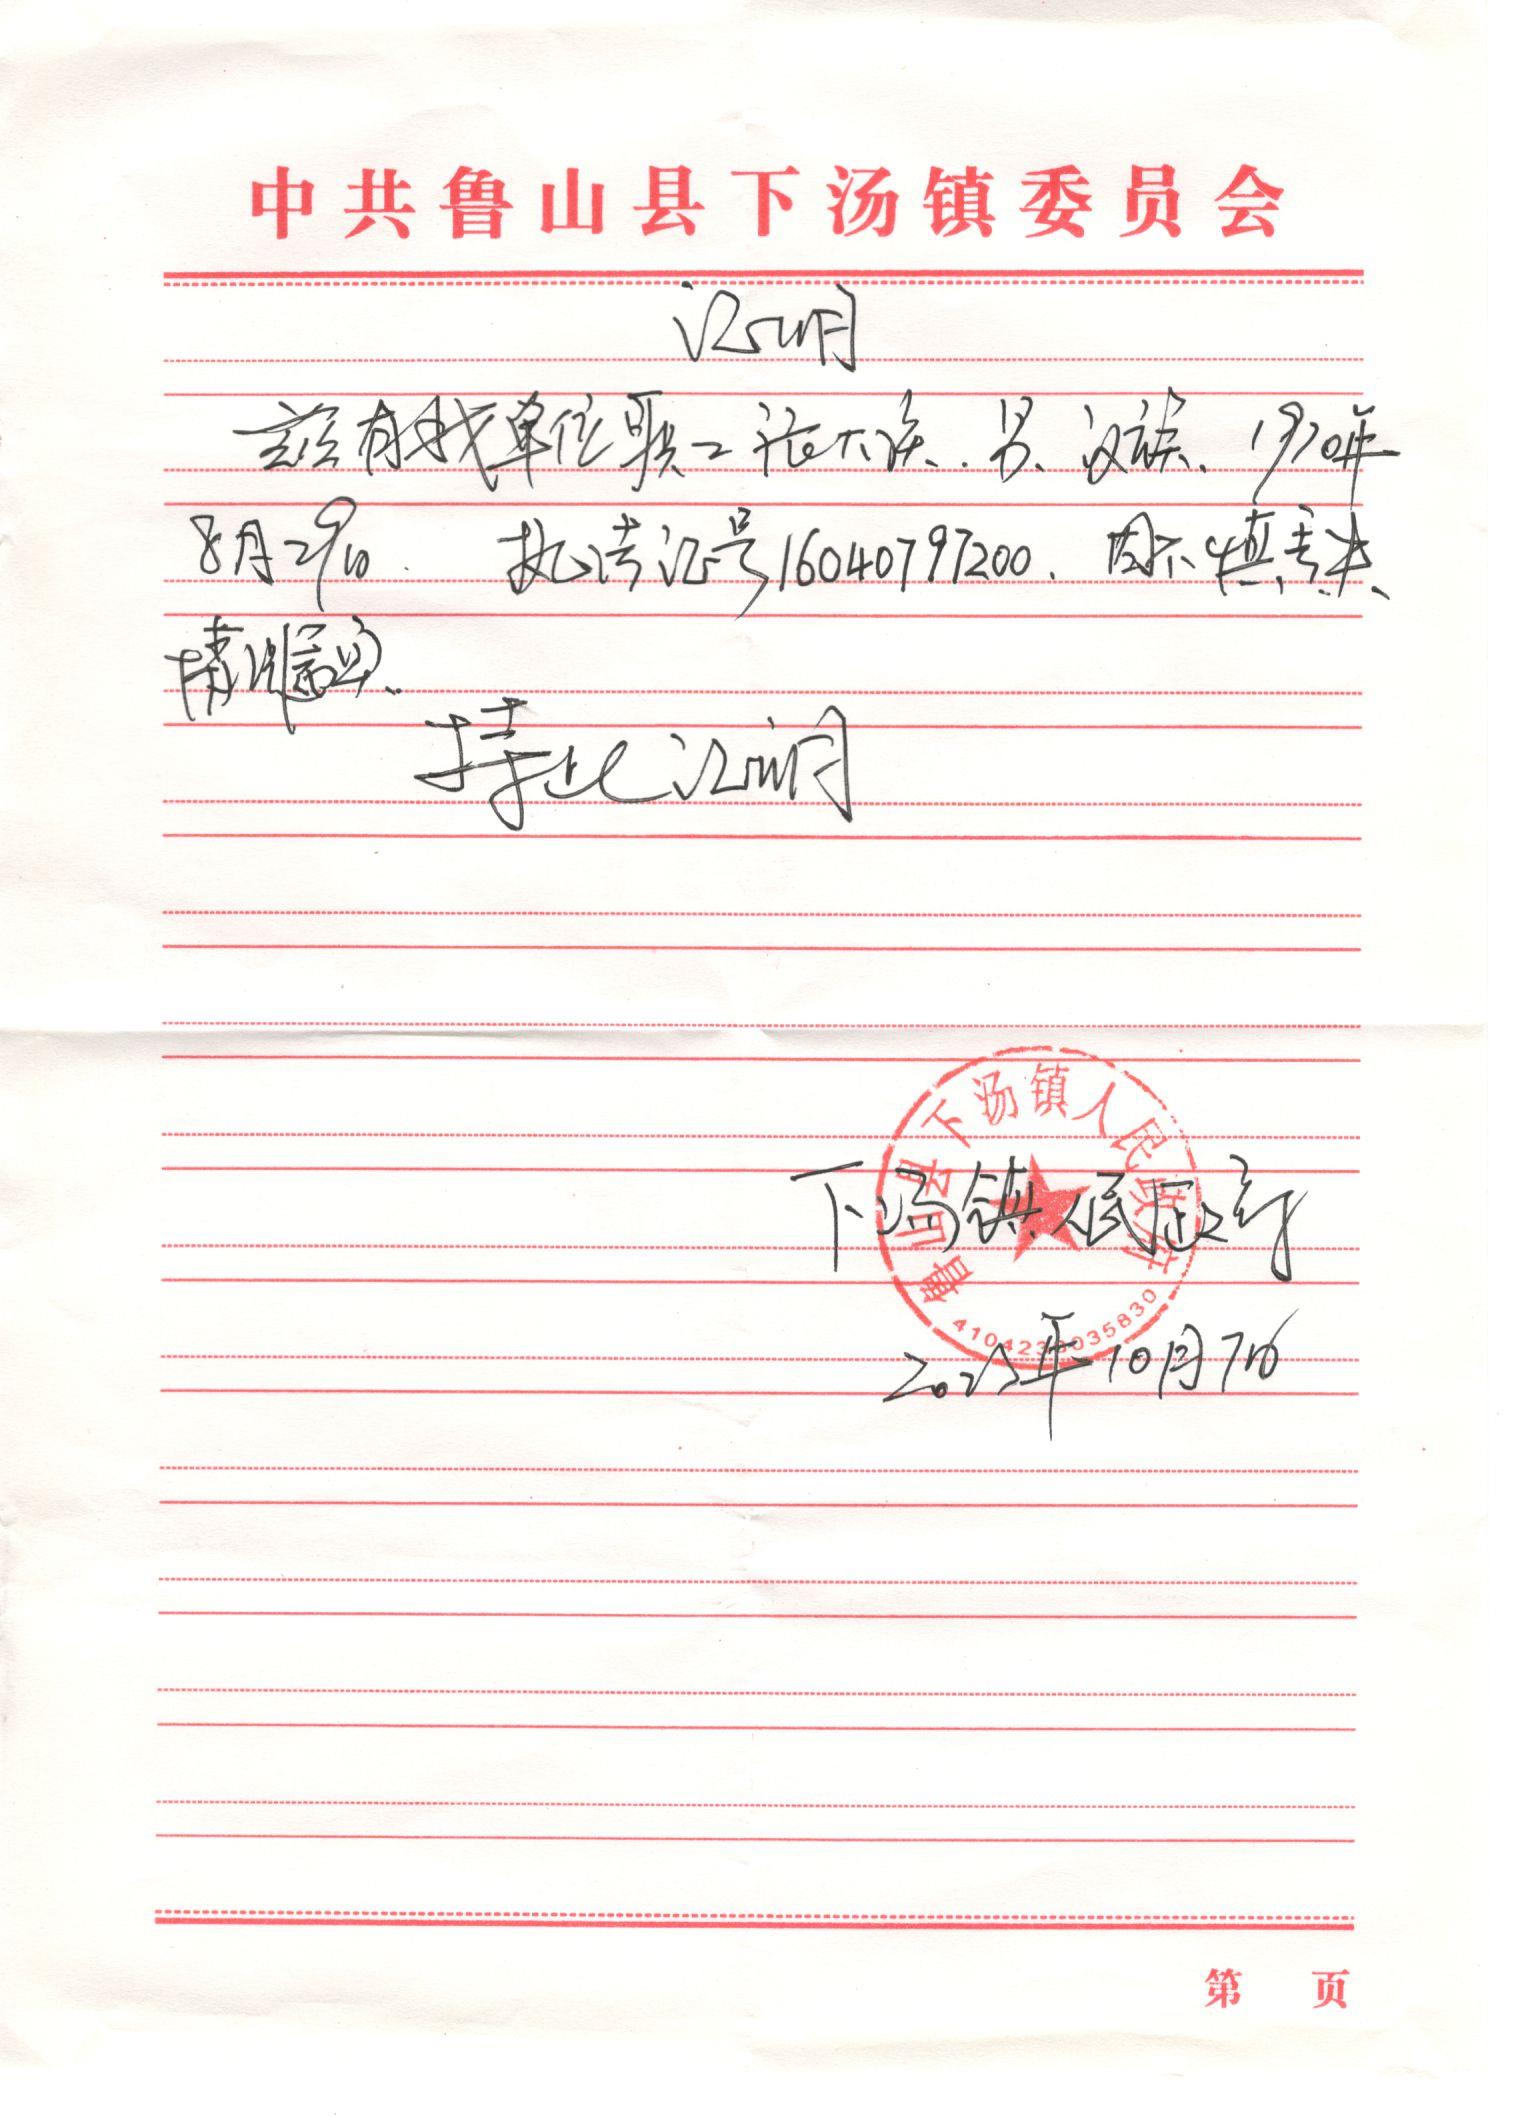 中共鲁山县下汤镇委员会
证明
兹有我单位职工 男、汉族、1970年
8月29日. 执法证号16040797200. 因不慎丢失.
情况属实.
特此证明
鲁山县下汤镇人民政府
下汤镇人民政府
4104230035830
2023年10月7日
第 页